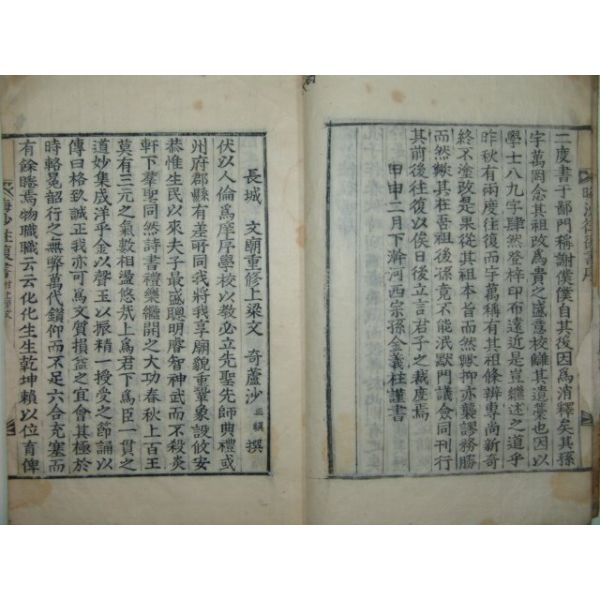 二度書于鄙門稱謝僕僕自其後因爲消釋矣其孫
字萬罔念其祖改爲貴之盛意校讎其遺藁也因以
學士八九字肆然登梓印布遠近是豈繼述之道乎
昨秋有兩度往復而字萬稱有其祖條辦專尚新奇
終不塗改是果從其祖本旨而然歟抑亦襲謬務勝
而然歟其在吾祖後孫竟不能泯默門議僉同刊行
其前後往復以俟日後立言君子之裁度焉
甲申二月下瀚河西宗孫金義柱謹書
長城 文廟重修上梁文 奇蘆沙 正鎭 撰
伏以人倫爲庠序學校以教必立先聖先師典禮或
州府郡縣有差所同我將我享廟貌重鞏象設攸安
恭惟生民以來夫子最盛聰明睿智神武而不殺炎
軒下羣聖同然詩書禮樂繼開之大功春秋上百王
莫有三元之氣數相盪悠哉上爲君下爲臣一貫之
道妙集成洋乎金以聲玉以振精一授受之節誦以
傳曰格致誠正我亦可爲文質損益之宜會其極於
時輅冕韶行之無弊萬代鑽仰而不足六合充塞而
有餘睠焉物職職云云化化生生乾坤賴以位育俾